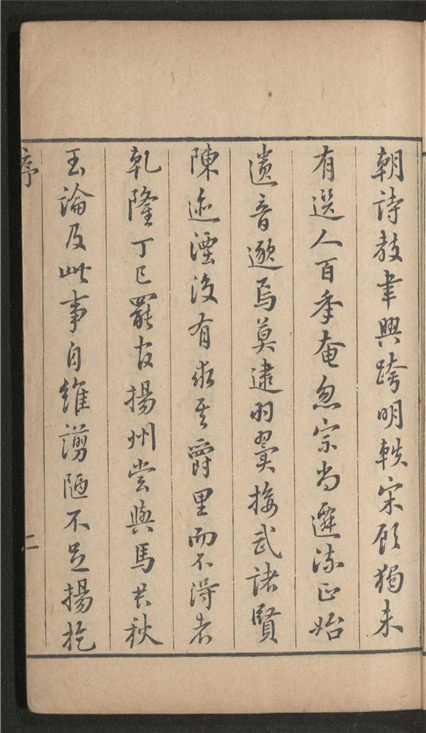 朝詩教聿興跨明軼宋顧獨未
有選人百年奄忽宗尚遷流正始
遺音邈焉莫逮羽翼接武諸賢
陳迹湮沒有求其爵里而不得者
乾隆丁巳罷官揚州嘗與馬君秋
玉論及此事自維謭陋不足揚扢
序
二